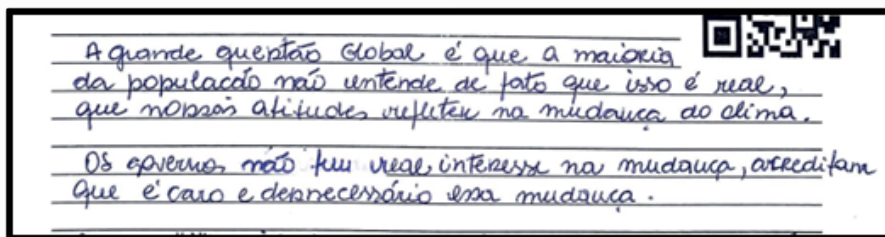 A grande questão Global é que a maioria
da população não entende de fato que isso é real,
que nossas atitudes refletem na mudança do clima.
Os governos não tem reais interesse na mudança, acreditam
que é caro e desnecessário essa mudança.